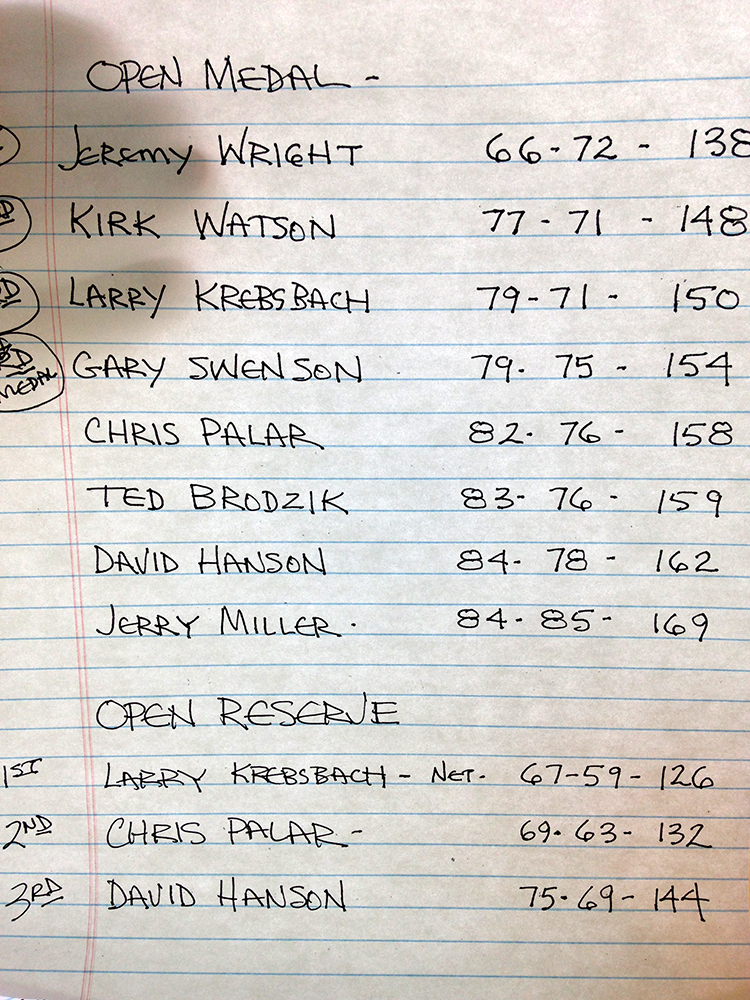 OPEN MEDAL -
JEREMY WRIGHT 66-72 - 138
KIRK WATSON 77-71 - 148
LARRY KREBSBACH 79-71 - 150
MEDAL GARY SWENSON 79-75 - 154
CHRIS PALAR 82-76 - 158
TED BRODZIK 83-76 - 159
DAVID HANSON 84-78 - 162
JERRY MILLER. 84-85- 169
OPEN RESERVE
1ST LARRY KREBSBACH - NET. 67-59-126
2ND CHRIS PALAR - 69-63- 132
3RD DAVID HANSON 75-69-144